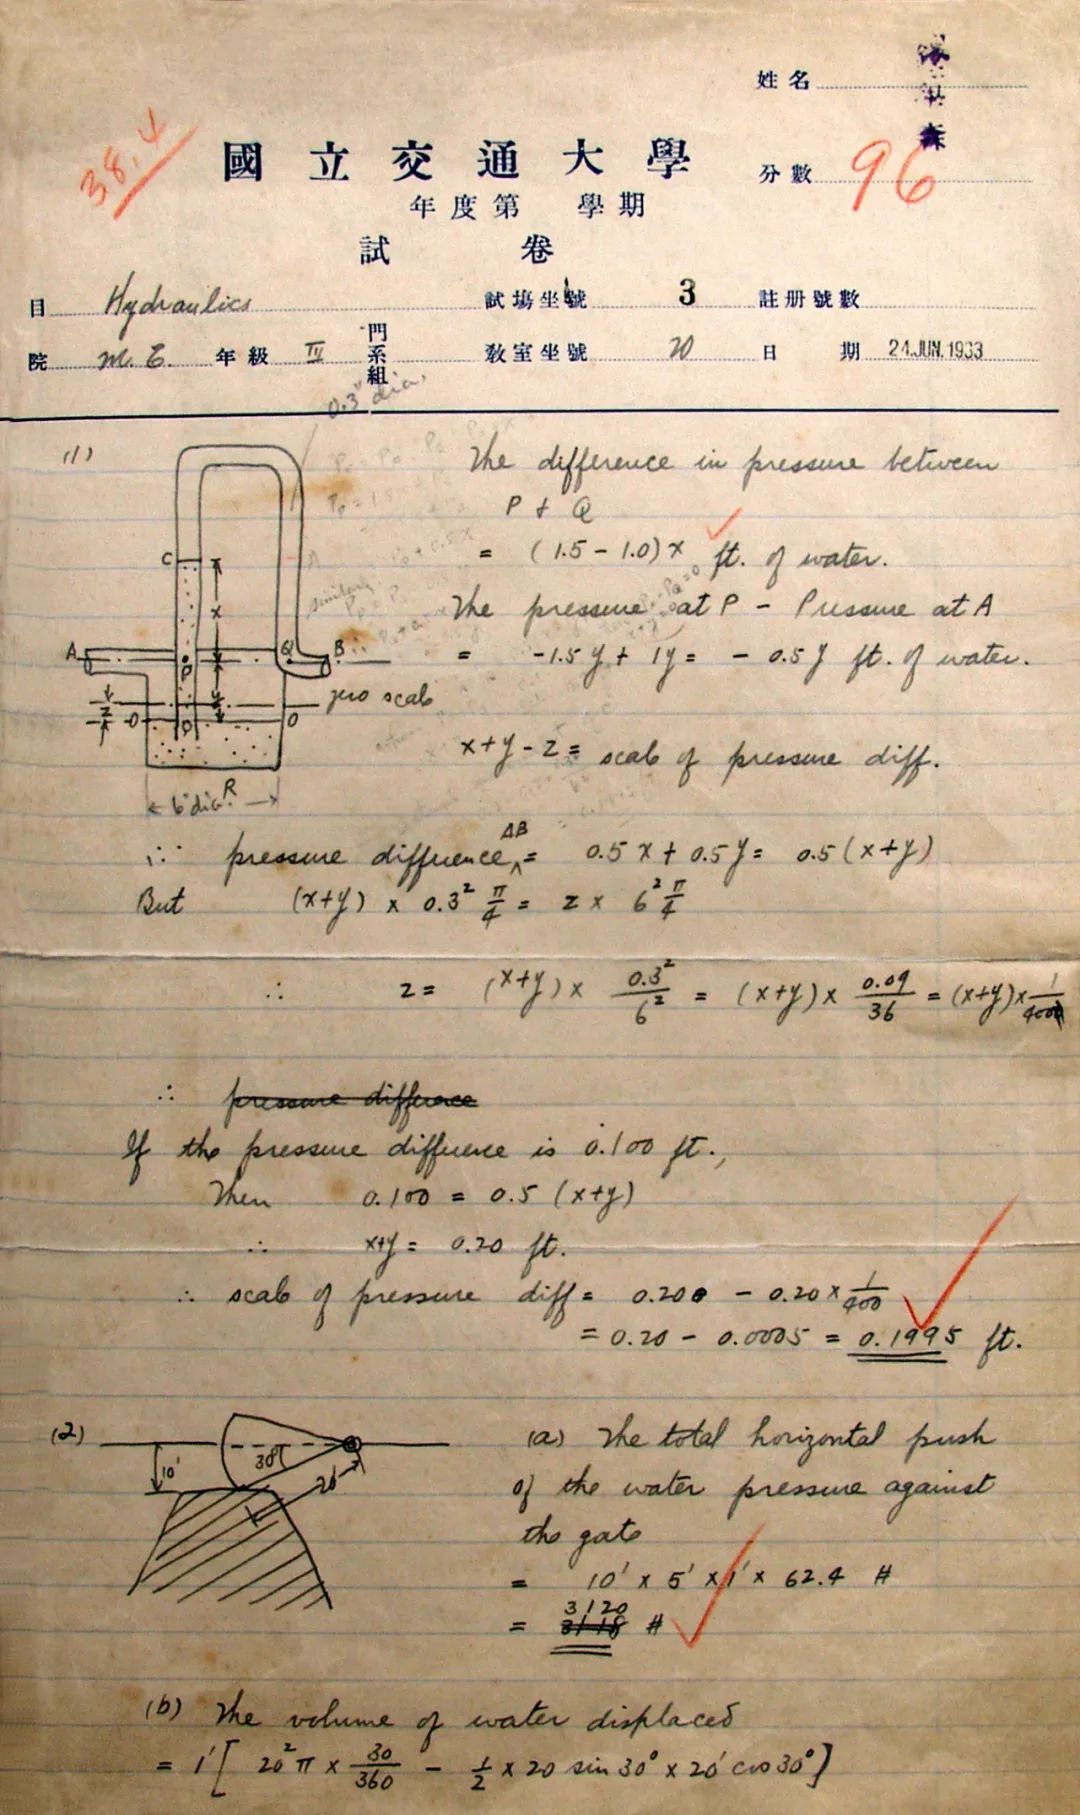 姓名
38.4
國立交通大學
分數 96
年度第 學期
試 卷
目 Hydraulics 試場坐號 3 註册號數
院 M.E. 年級 IV 門系組 教室坐號 20 日 期 24.JUN.1933
0.3" dia.
(1) The difference in pressure between
P + Q
= (1.5 - 1.0)x ft. of water.
The pressure at P - Pressure at A
= -1.5y + 1y = -0.5y ft. of water.
C
x
A P Q B
zero scale
z O y O
D
x+y-z = scale of pressure diff.
6" dia. R
∴ pressure difference AB = 0.5x + 0.5y = 0.5(x+y)
But (x+y) x 0.3² π/4 = z x 6² π/4
∴ z = (x+y) x 0.3²/6² = (x+y) x 0.09/36 = (x+y) x 1/400
∴ pressure difference
If the pressure difference is 0.100 ft.,
Then 0.100 = 0.5 (x+y)
∴ x+y = 0.20 ft.
∴ scale of pressure diff = 0.200 - 0.20 x 1/400
= 0.20 - 0.0005 = 0.1995 ft.
(2) (a) The total horizontal push
10' 30° 20'
of the water pressure against
the gate
= 10' x 5' x 1' x 62.4 #
= 3120 #
(b) The volume of water displaced
= 1' [ 20² π x 30/360 - 1/2 x 20 sin 30° x 20' cos 30° ]